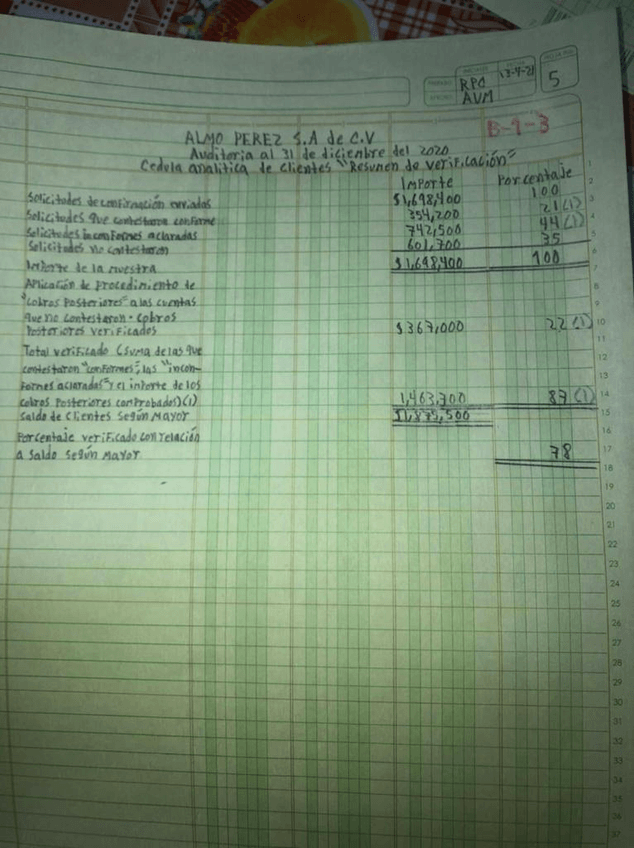 RPO 13-4-21 5
AVM
B-1-3
ALMO PEREZ S.A de C.V
Auditoria al 31 de diciembre del 2020
Cedula analitica de clientes "Resumen de verificación"
Importe Porcentaje
Solicitudes de confirmación enviadas $1,698,400 100
Solicitudes que contestaron conforme 354,200 21 (1)
Solicitudes inconformes aclaradas 742,500 44 (1)
Solicitudes no contestaron 601,700 35
Importe de la muestra $1,698,400 100
Aplicación de procedimiento de
"cobros posteriores" a las cuentas
que no contestaron - cobros
posteriores verificados $367,000 22 (1)
Total verificado (suma de las que
contestaron "conformes", las "incon-
formes aclaradas" y el importe de los
cobros posteriores comprobados) (1) 1,463,700 87 (1)
Saldo de clientes según mayor $1,875,500
Porcentaje verificado con relación
a saldo según mayor 78
1
2
3
4
5
6
7
8
9
10
11
12
13
14
15
16
17
18
19
20
21
22
23
24
25
26
27
28
29
30
31
32
33
34
35
36
37